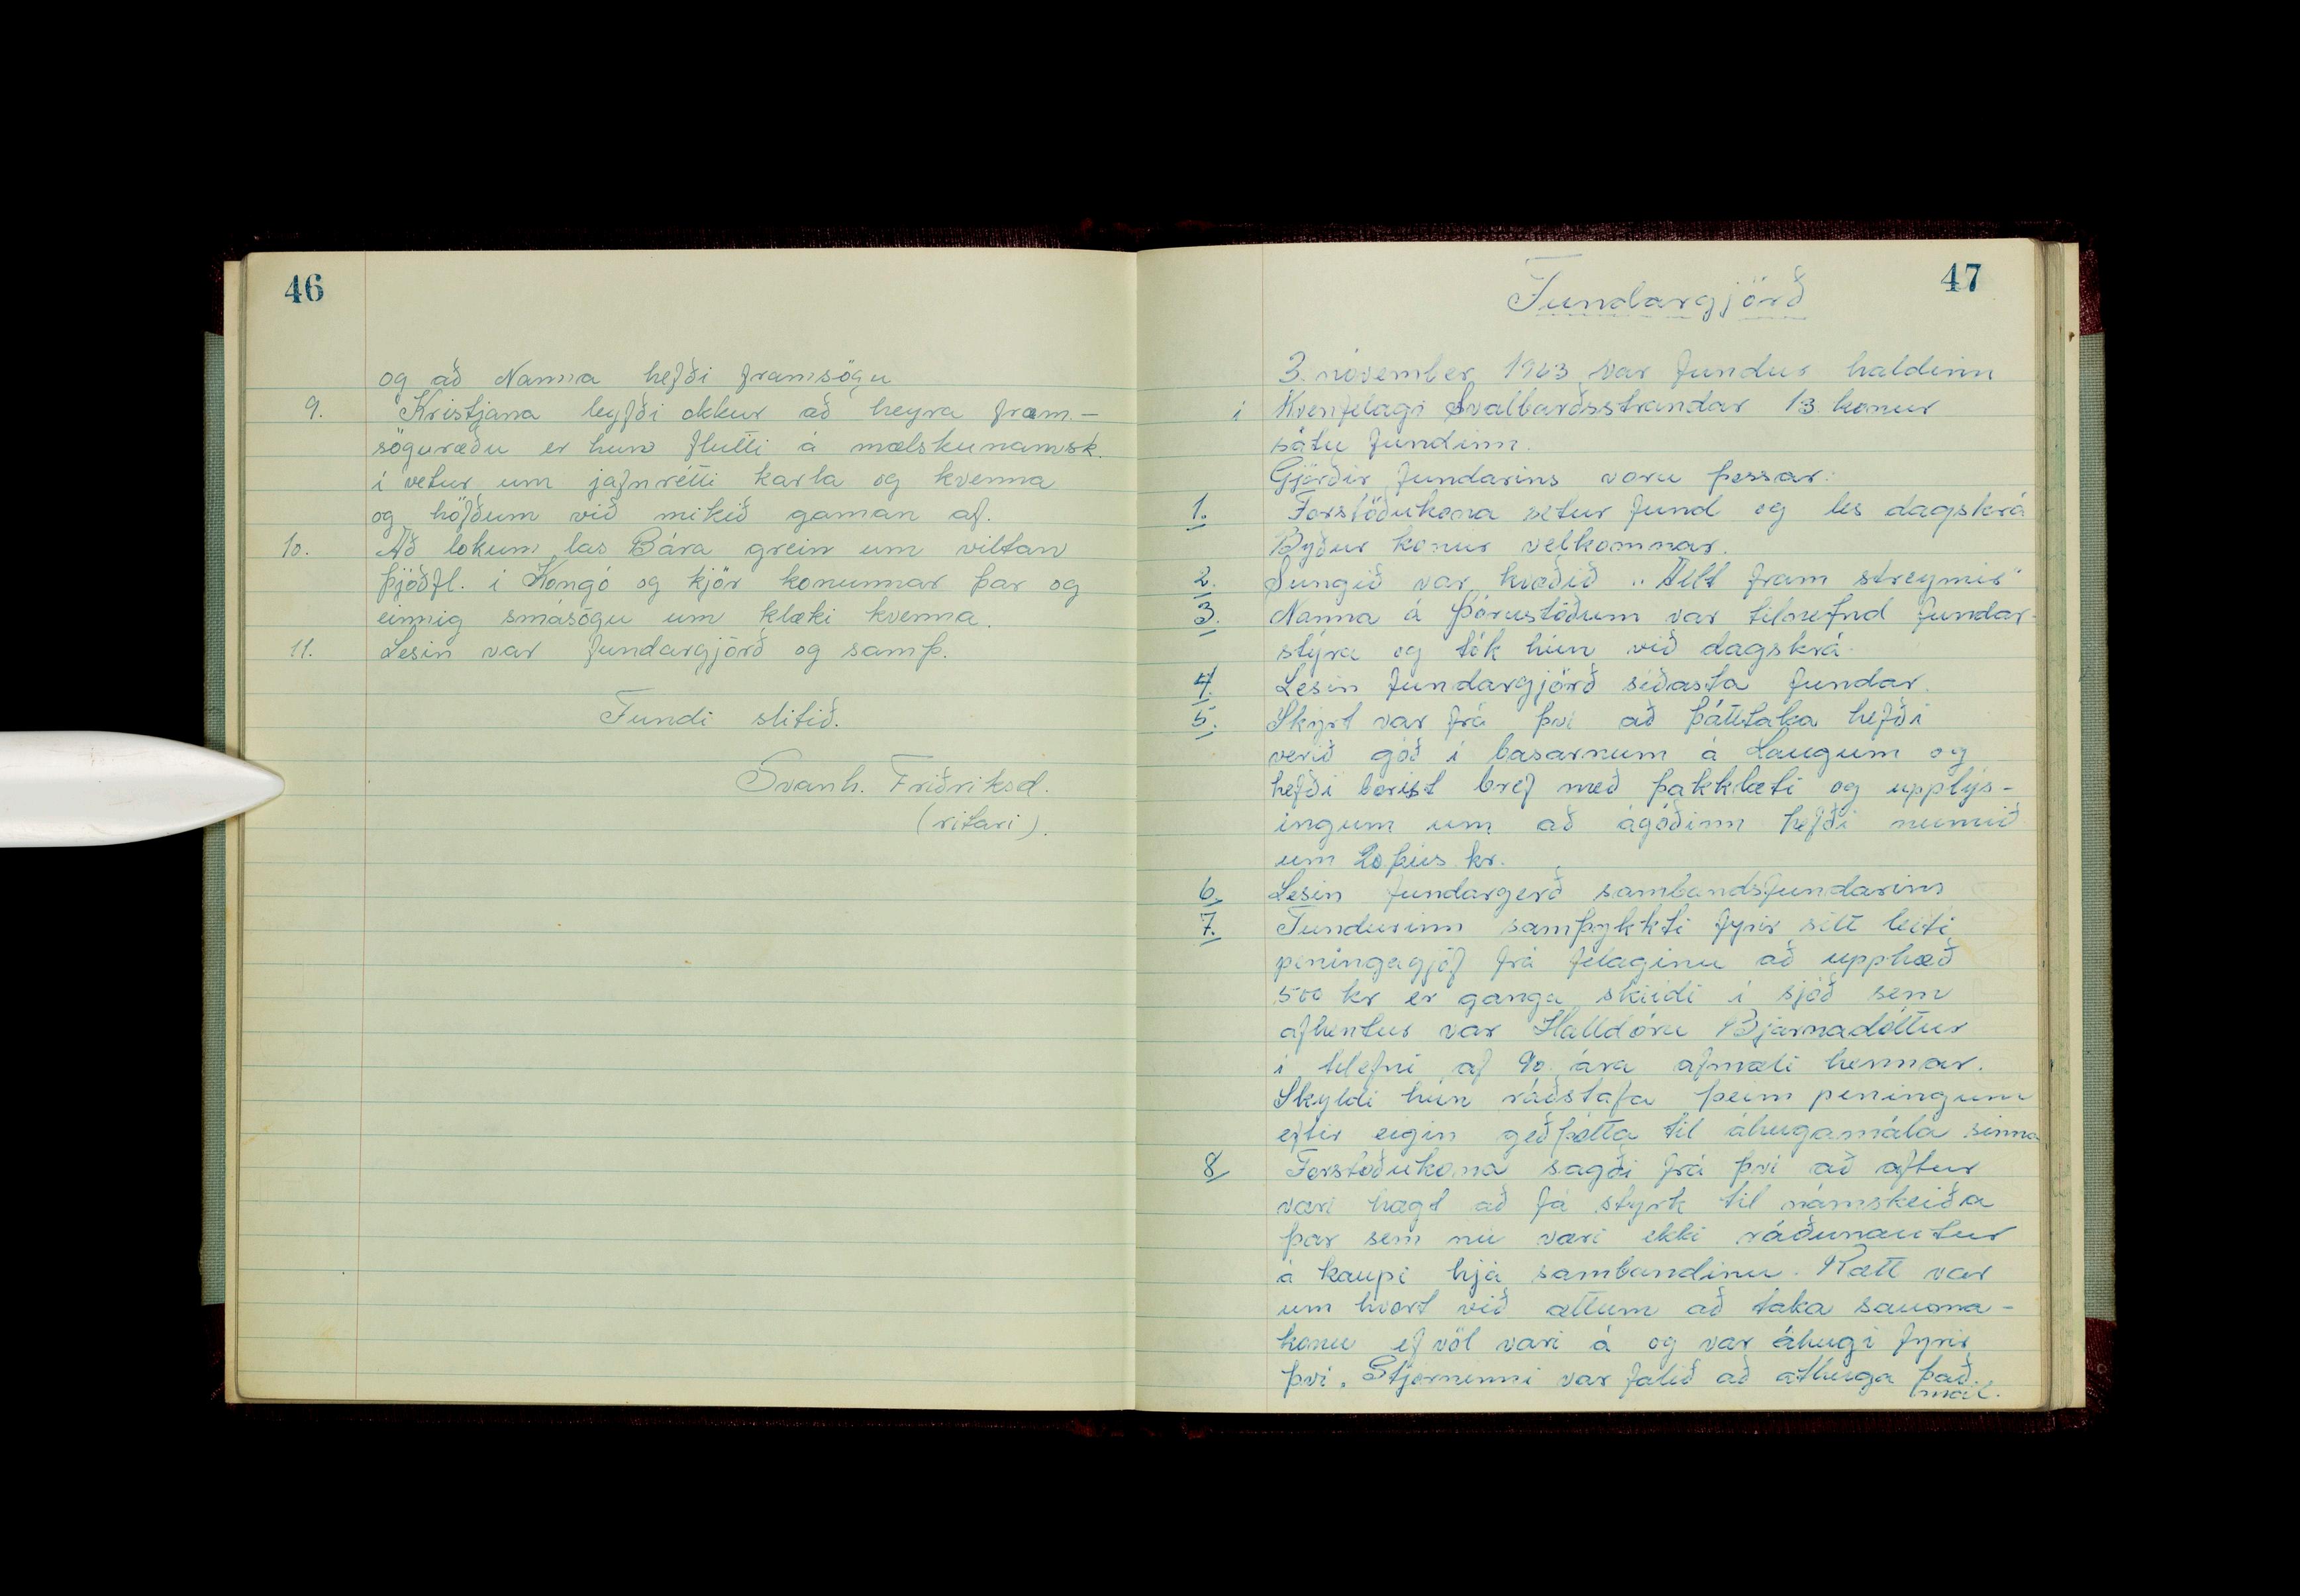 46
og að Nanna hefði framsögu
9. Kristjana leyfði okkur að heyra fram-
söguræðu er hun flutti á mælskunamsk.
i vetur um jafnrétti karla og kvenna
og höfðum við mikið gaman af.
10. Að lokum las Bára grein um viltan
þjóðfl. i Kongó og kjör konunnar þar og
einnig smásögu um klæki kvenna.
11. Lesin var fundargjörð og samþ.
Fundi slitið.
Svanh. Friðriksd.
(ritari).
47
Fundargjörð
3. nóvember 1963 var fundur haldinn
i Kvenfelagi Svalbarðsstrandar 13 konur
sátu fundinn.
Gjörðir fundarins voru þessar:
1. Forstöðukona setur fund og les dagskrá
Byður konur velkomnar.
2. Sungið var kvæðið „Allt fram streymir"
3. Nanna á Þórustöðum var tilnefnd fundar-
stýra og tók hún við dagskrá.
4. Lesin fundargjörð síðasta fundar.
5. Skýrt var frá því að þátttaka hefði
verið góð i basarnum á Laugum og
hefði borist bref með þakklæti og upplýs-
ingum um að ágóðinn hefði numið
um 20 þús kr.
6. Lesin fundargerð sambandsfundarins
7. Fundurinn samþykkti fyrir sitt leiti
peningagjöf frá félaginu að upphæð
500 kr er ganga skildi i sjóð sem
afhentur var Halldóru Bjarnadóttur
i tilefni af 90 ára afmæli hennar.
Skyldi hún ráðstafa þeim peningum
eftir eigin geðþótta til áhugamála sinna
8. Forstöðukona sagði frá því að aftur
væri hægt að fá styrk til námskeiða
þar sem nú væri ekki ráðunautur
á kaupi hjá sambandinu. Rætt var
um hvort við ættum að taka sauma-
konu ef völ væri á og var áhugi fyrir
því. Stjórninni var falið að athuga það.
mál.